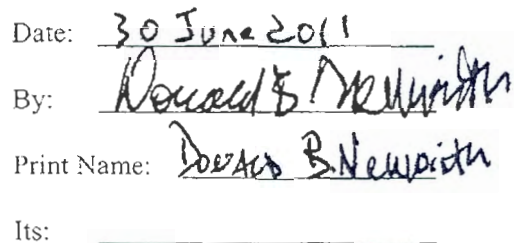 Date: 30 June 2011
By: Donald B Neuwirth
Print Name: Donald B. Neuwirth
Its: